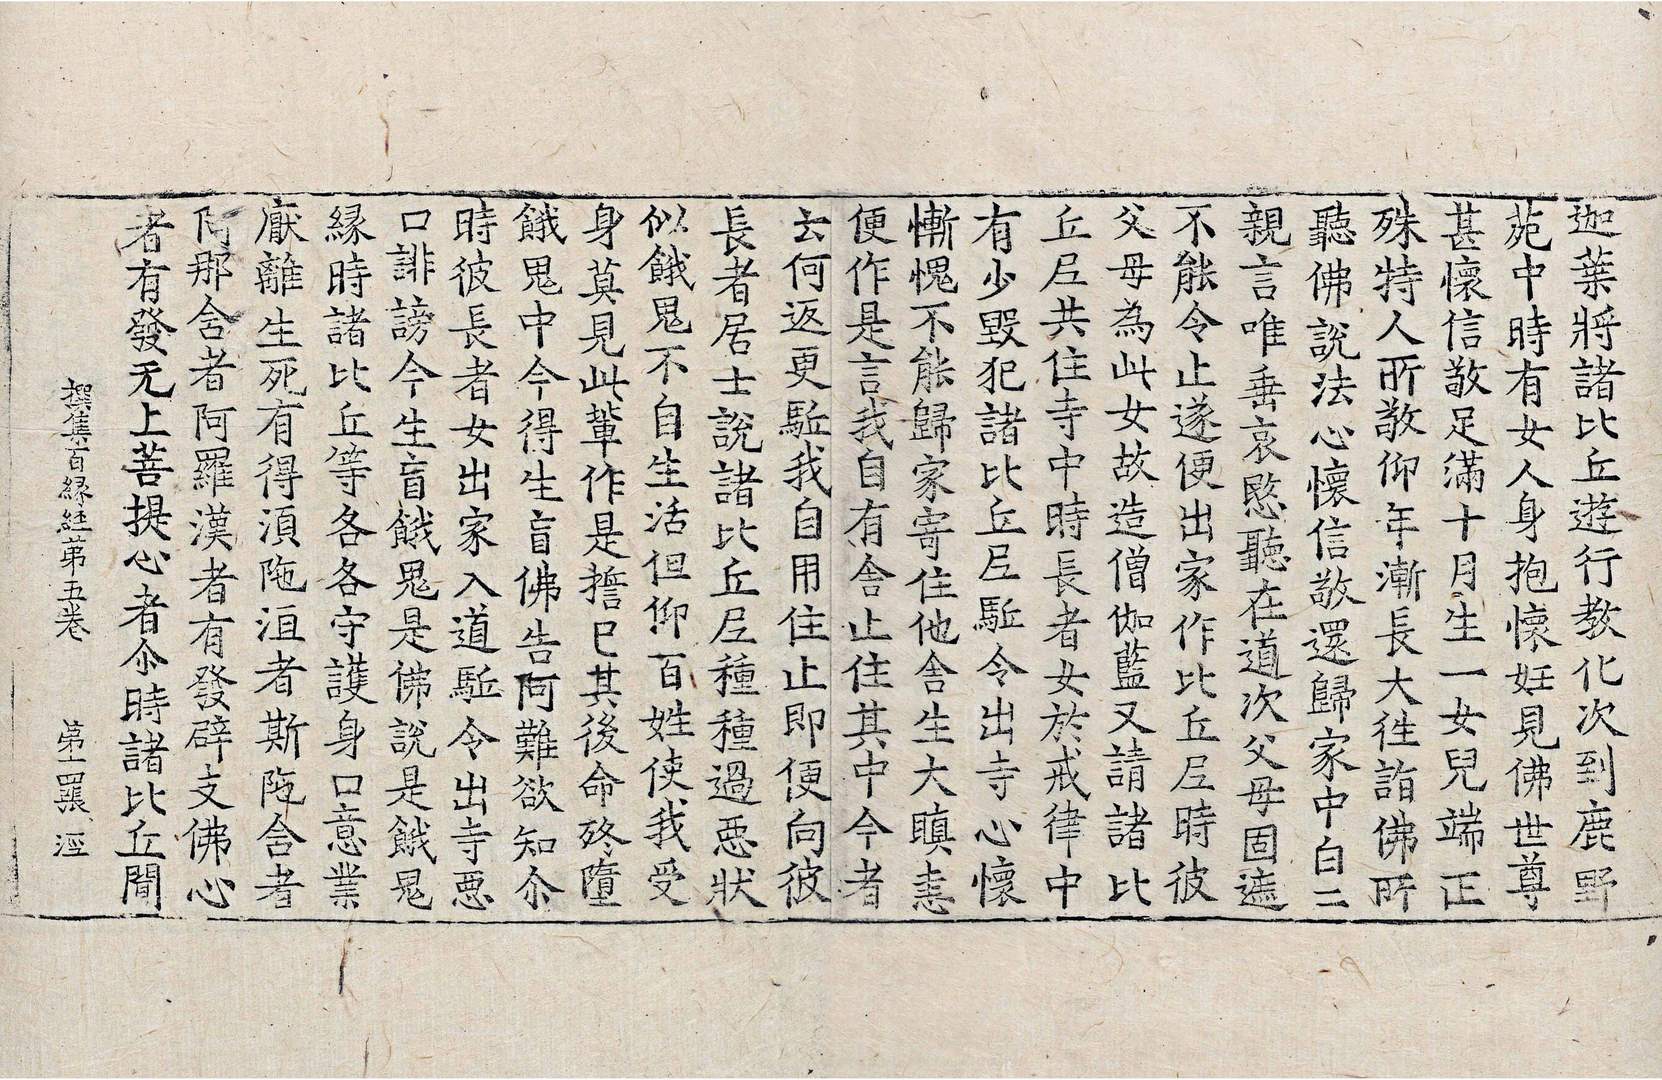 迦葉將諸比丘遊行教化次到鹿野
苑中時有女人身抱懷妊見佛世尊
甚懷信敬足滿十月生一女兒端正
殊特人所敬仰年漸長大往詣佛所
聽佛說法心懷信敬還歸家中白二
親言唯垂哀愍聽在道次父母固遮
不能令止遂便出家作比丘尼時彼
父母為此女故造僧伽藍又請諸比
丘尼共住寺中時長者女於戒律中
有少毀犯諸比丘尼駈令出寺心懷
慚愧不能歸家寄住他舍生大瞋恚
便作是言我自有舍止住其中今者
云何返更駈我自用住止即便向彼
長者居士說諸比丘尼種種過惡狀
似餓鬼不自生活但仰百姓使我受
身莫見此輩作是誓已其後命終墮
餓鬼中今得生盲佛告阿難欲知尒
時彼長者女出家入道駈令出寺惡
口誹謗今生盲餓鬼是佛說是餓鬼
緣時諸比丘等各各守護身口意業
猒離生死有得湏陁洹者斯陁含者
阿那含者阿羅漢者有發辟支佛心
者有發无上菩提心者尒時諸比丘聞
撰集百緣經第五卷 第十四張 淫